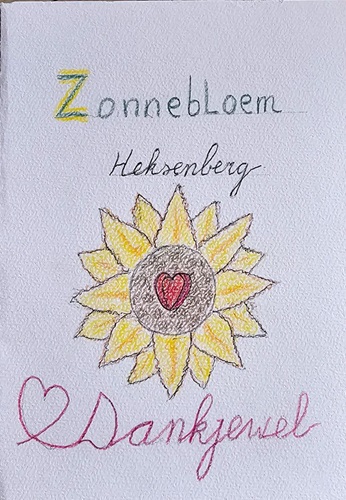 Zonnebloem
Heksenberg
Dankjewel